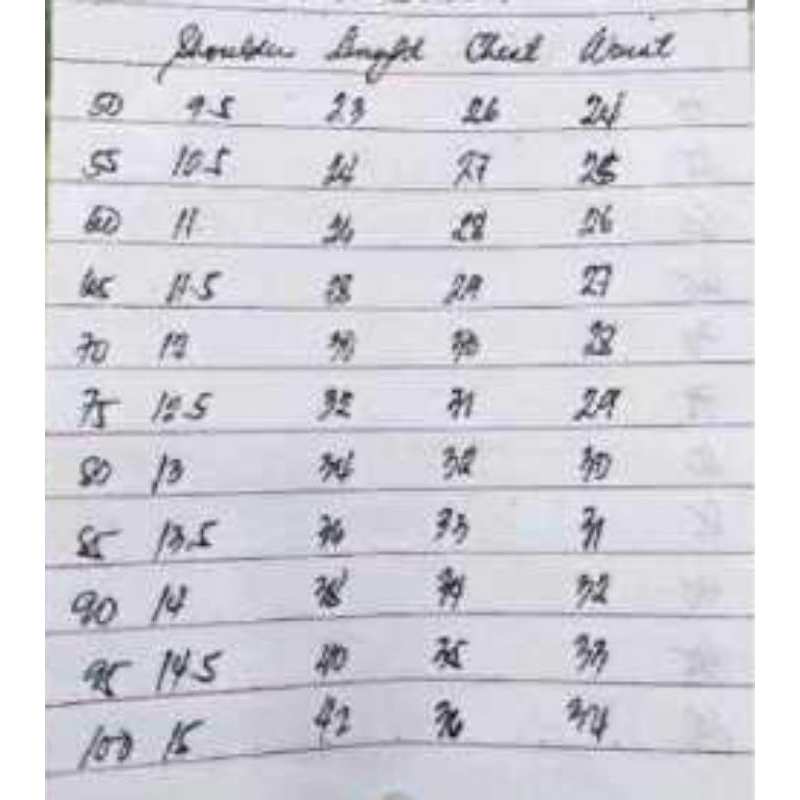 Shoulder Length Chest Waist
50 9.5 23 26 24
55 10.5 24 27 25
60 11 26 28 26
65 11.5 28 29 27
70 12 30 30 28
75 12.5 32 31 29
80 13 34 32 30
85 13.5 36 33 31
90 14 38 34 32
95 14.5 40 35 33
100 15 42 36 34